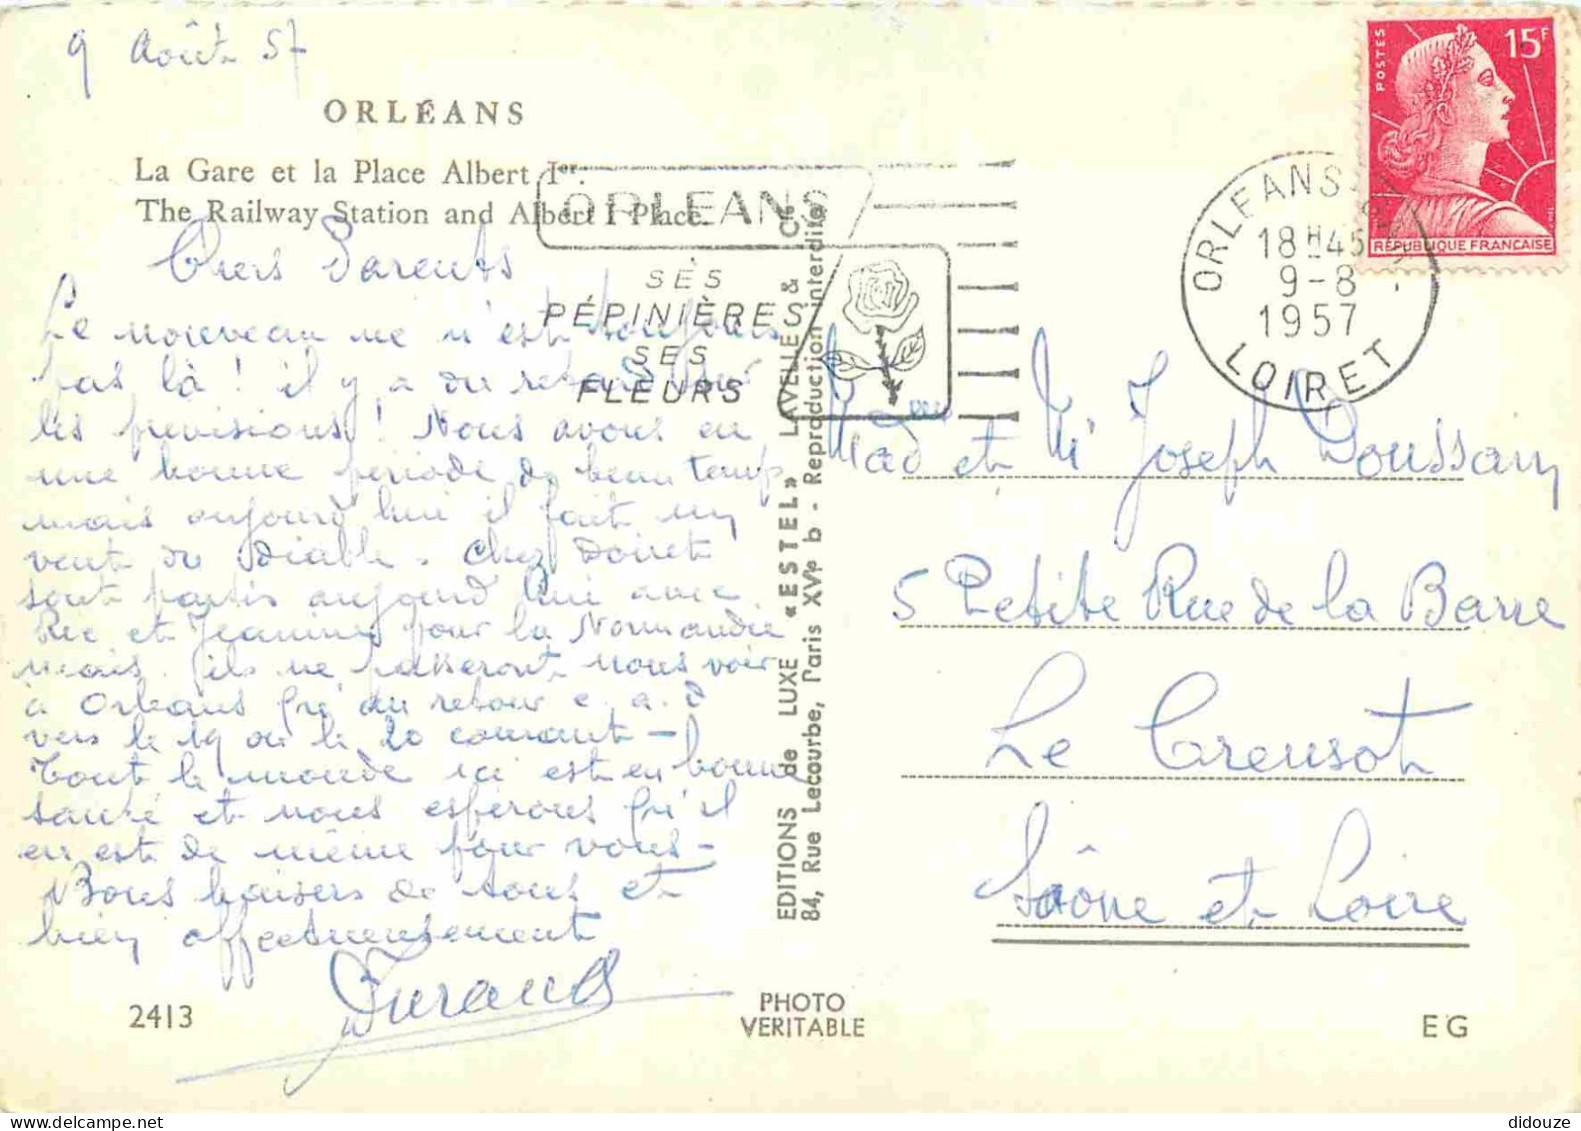 9 Août 57
ORLÉANS
La Gare et la Place Albert Ier.
The Railway Station and Albert I Place.
ORLEANS
SES
PÉPINIÈRES
SES
FLEURS
POSTES
15F
REPUBLIQUE FRANÇAISE
ORLEANS
18H45
9-8
1957
LOIRET
Chers Parents
Le nouveau né n'est toujours
pas là ! il y a du retard sur
les prévisions ! Nous avons eu
une bonne période de beau temps
mais aujourd'hui il fait un
vent du diable. Chez Doiret
sont partis aujourd'hui avec
et Jeanine pour la Normandie
mais ils ne passeront nous voir
à Orléans qu'au retour c.a.d
vers le 19 ou le 20 courant -
Tout le monde ici est en bonne
santé et nous espérons qu'il
en est de même pour vous -
Bons baisers de tous et
bien affectueusement
Durand
EDITIONS de LUXE «ESTEL» LAVELLE & Cie
84, Rue Lecourbe, Paris XVe b - Reproduction interdite
Mad et Mr Joseph Doussain
5 Petite Rue de la Barre
Le Creusot
Saône et Loire
2413
PHOTO
VERITABLE
EG
didouze